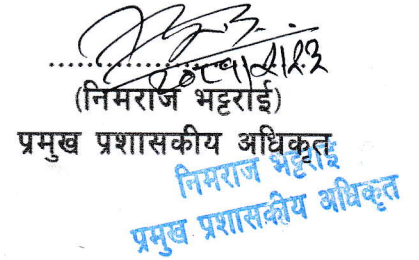 (निमराज भट्टराई)
प्रमुख प्रशासकीय अधिकृत
निमराज भट्टराई
प्रमुख प्रशासकीय अधिकृत